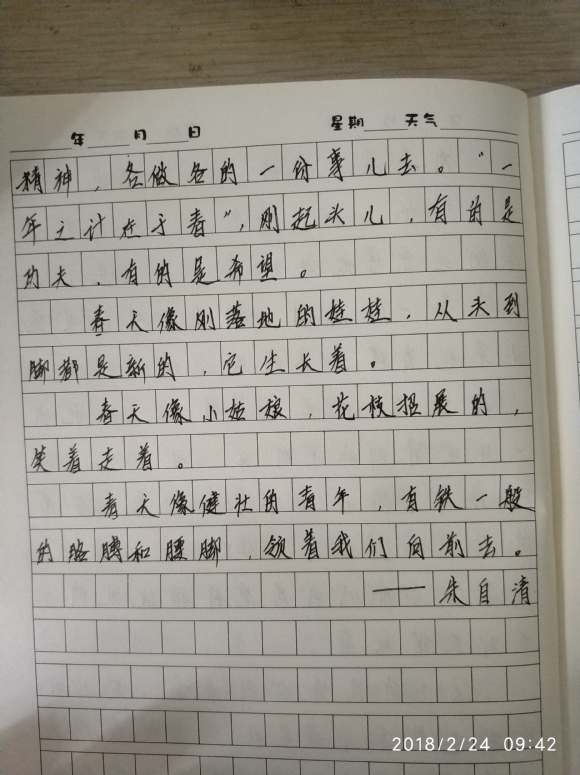 年 月 日 星期 天气
精神，各做各的一份事儿去。“一
年之计在于春”，刚起头儿，有的是
功夫，有的是希望。
春天像刚落地的娃娃，从头到
脚都是新的，它生长着。
春天像小姑娘，花枝招展的，
笑着走着。
春天像健壮的青年，有铁一般
的胳膊和腰脚，领着我们向前去。
——朱自清
2018/2/24 09:42